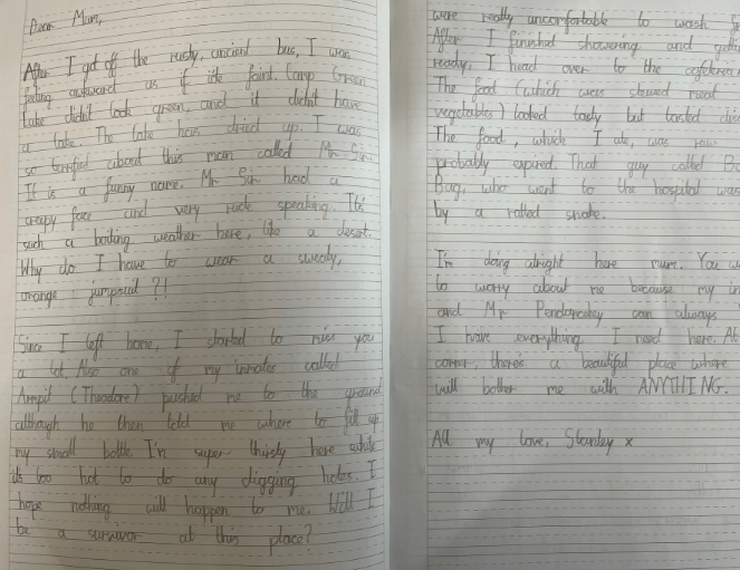 Dear Mum,
After I got off the rusty, ancient bus, I was
feeling awkward as if i'de faint. Camp Green
Lake didn't look green, and it didn't have
a lake. The lake has dried up. I was
so terrified about this man called Mr Sir.
It is a funny name. Mr Sir had a
creepy face and very rude speaking. It's
such a boiling weather here, like a desert.
Why do I have to wear a sweaty,
orange jumpsuit ?!
Since I left home, I started to miss you
a lot. Also one of my inmates called
Armpit (Theodore) pushed me to the ground
although he then told me where to fill up
my small bottle. I'm super thirsty here while
it's too hot to do any digging holes. I
hope nothing will happen to me. Will I
be a survivor at this place?
were really uncomfortable to wash
After I finished showering and
ready, I head over to the
The food (which was stewed meat
vegetables) looked tasty but tasted
The food, which I ate, was raw
probably expired. That guy called
Bag, who went to the hospital was
by a rattled snake.
I'm doing alright here mum. You
to worry about me because my
and Mr Pendanskey can always
I have everything I need here. At
corner, there's a beautiful place where
will bother me with ANYTHING.
All my love, Stanley x